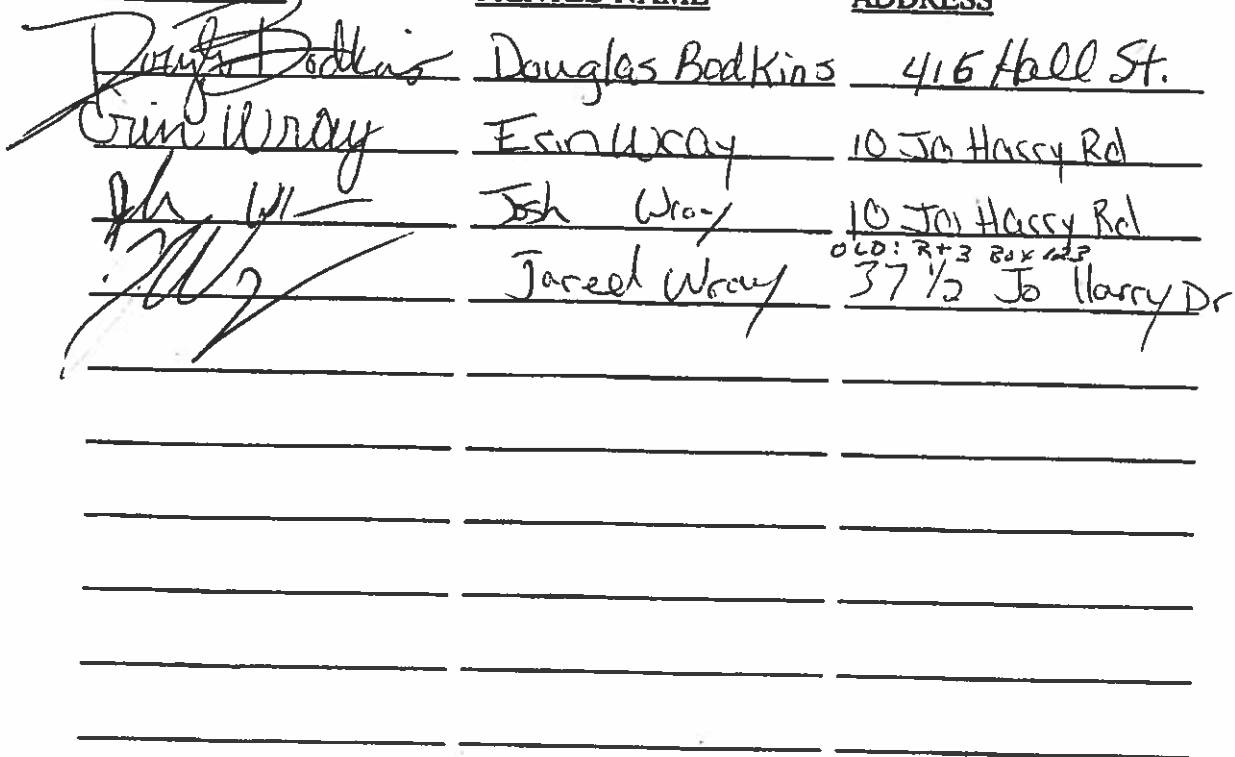 PRINTED NAME ADDRESS
Bodkins Douglas Bodkins 416 Hall St.
Erin Wray Erin Wray 10 Jo Harry Rd
Josh Wray 10 Jo Harry Rd
OLD: Rt 3 Box
Jared Wray 37 1/2 Jo Harry Dr